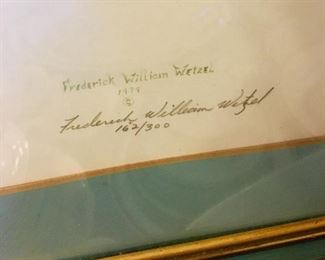 Frederick William Wetzel
1979
©
Frederick William Wetzel
162/300